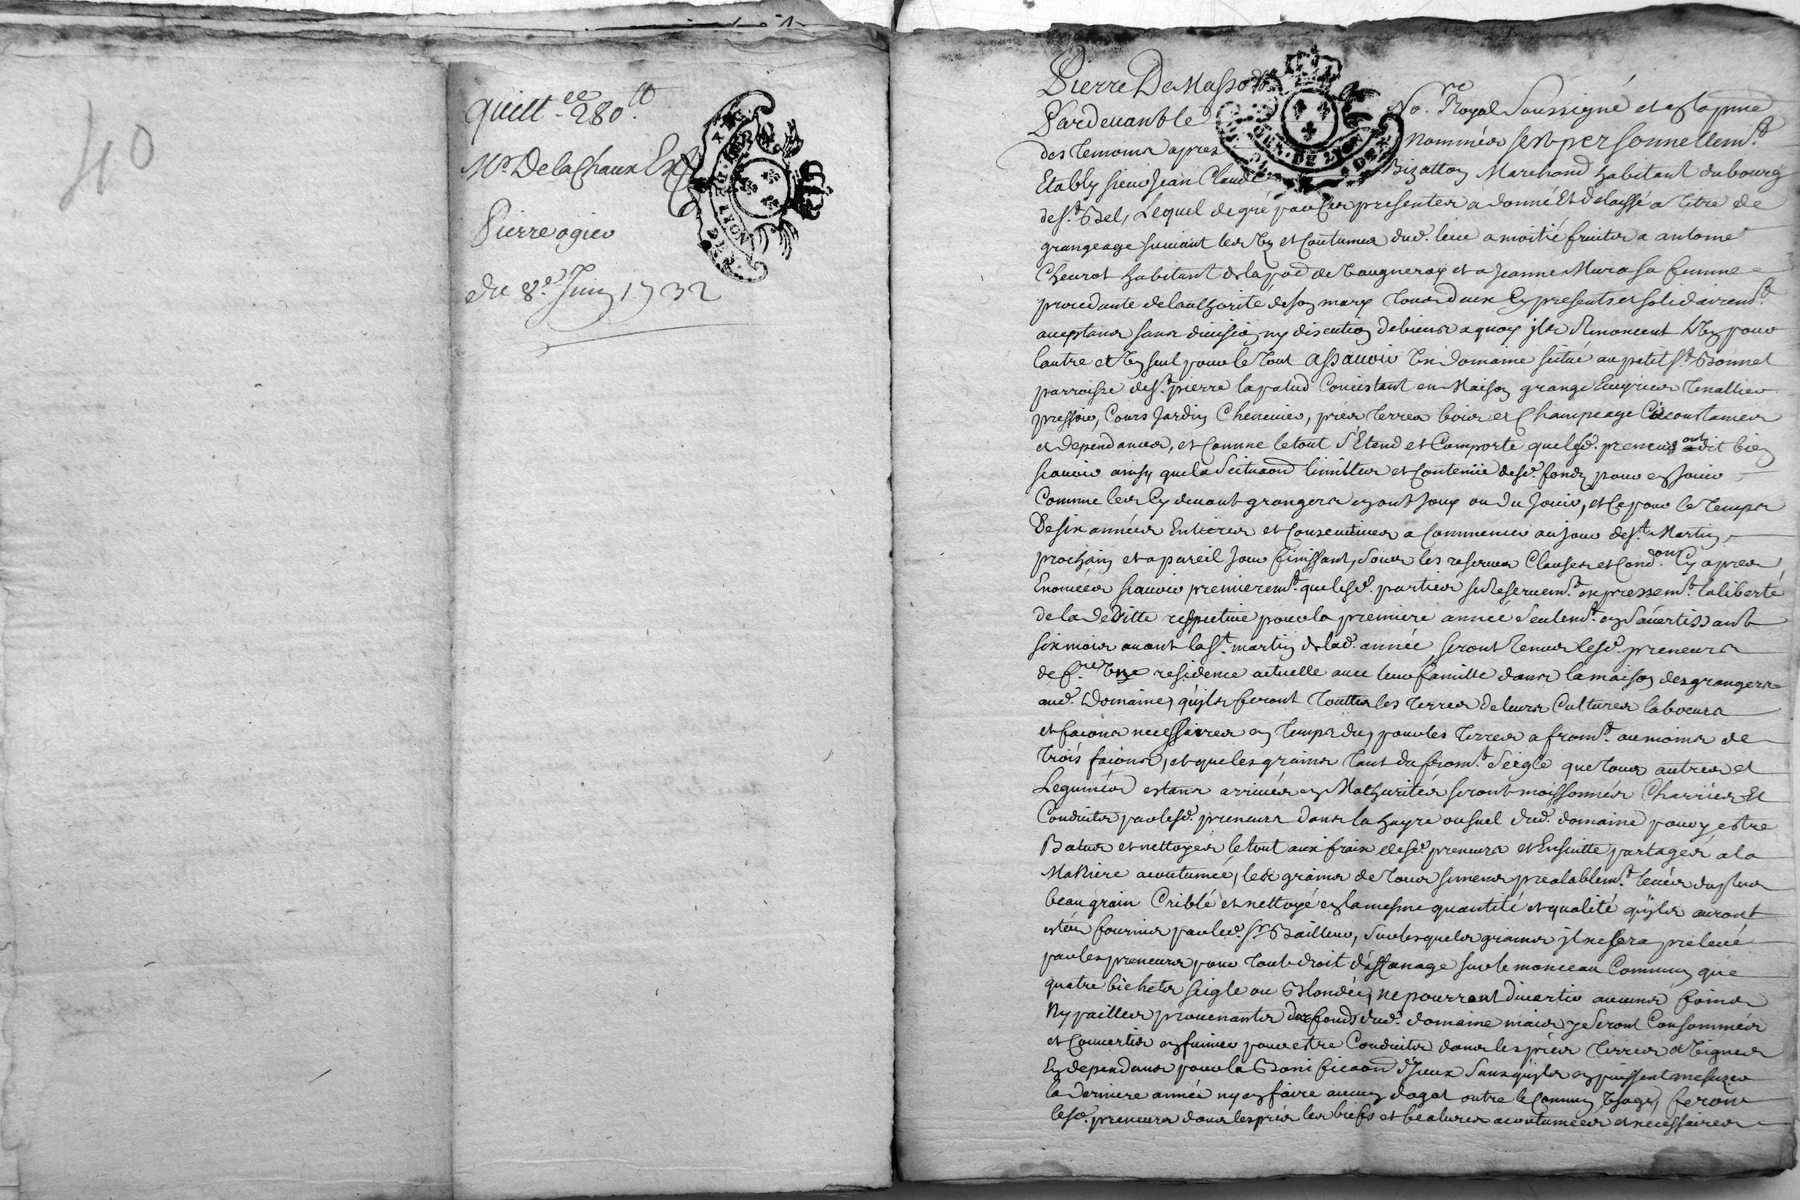 40
Quitt.ce 280.tt
Mr. De la Chaux Et
Pierre ogier
du 8.e Juin 1732
GEN. DE LYON
Pierre De Masso
Pardevant le No.re Royal Soussigné et en la pnce
des temoins apres nommés s'est personnellemt.
Etably sieur Jean Claude Bizallon Marchand habitant du bourg
de st. Bel, Lequel de gré par ces presentes a donné Et delaissé a titre de
grangeage suivant les us et Coutumes dud. lieu a moitié fruits a antoine
Cheurot habitant de la pce de Vaugneray et a Jeanne Mura sa femme
procedante de l'authorité de son mary tous deux Icy presents et solidairemt.
acceptans sans division ny discution de biens a quoy ils Renoncent L'un pour
l'autre et Un seul pour le tout assavoir Un domaine situé au petit st. Bonnet
parroisse de st. pierre la palud Concistant en Maison grange Ecuries tenallier
pressoir, Cours Jardin Chenevier, prés terres bois et Champeage Circonstances
et dependances, et Comme le tout s'Etend et Comporte que lesd. preneurs ont dit bien
scavoir ainsy que la Scituaon limittes et Contenüe desd. fonds pour en Jouir
Comme les Cy devant grangers en ont Jouy ou du Jouir, et Ce pour le temps
De six années Entieres et Consecutives a Commencer au jour de st. Martin
prochain et a pareil Jour finissant, sous les reserves Clauses et Condons. Cy apres
Enoncées scavoir premieremt. que lesd. parties se reservent expressemt. la liberté
de la deditte respective pour la premiere année seulemt. en s'avertissant
six mois avant la st. martin de lad. année, seront tenus lesd. preneurs
de f.re une residence actuelle avec leur famille dans la maison des grangers
aud. Domaine, qu'ils feront touttes les terres de leurs Cultures labeurs
et façons necessaires en temps du, pour les terres a fromt. au moins de
trois façons, et que les grains tant du fromt. Seigle que tous autres et
Legumes estans arrivés en Mathurités seront moissonnés Charriés Et
Conduits par lesd. preneurs dans la hayre ou suel dud. domaine pour y estre
Batus et nettoyés le tout aux fraix desd. preneurs et Ensuitte partagés a la
Maniere acoutumée, les grains de tous semens prealablemt. levés du plus
beau grain Criblé et nettoyé en la mesme quantité et qualité qu'ils auront
estés fournis par led. sr. Bailleur, sur lesquels grains il ne sera prelevé
par les preneurs pour tout droit d'affanage sur le monceau Commun que
quatre bichets seigle ou Blondée, ne pourront divertir aucuns foins
Ny pailles provenantes des fonds dud. domaine mais y Seront Consommées
et Converties en fumier pour estre Conduites dans les prés terres et vignes
En dependans pour la Bonificaon d'Jceux Sans qu'ils en puissent mesuzer
la derniere année ny en faire aucun degat outre le Commun Usage, feront
lesd. preneurs dans les prés les biefs et beatures acoutumées et necessaires